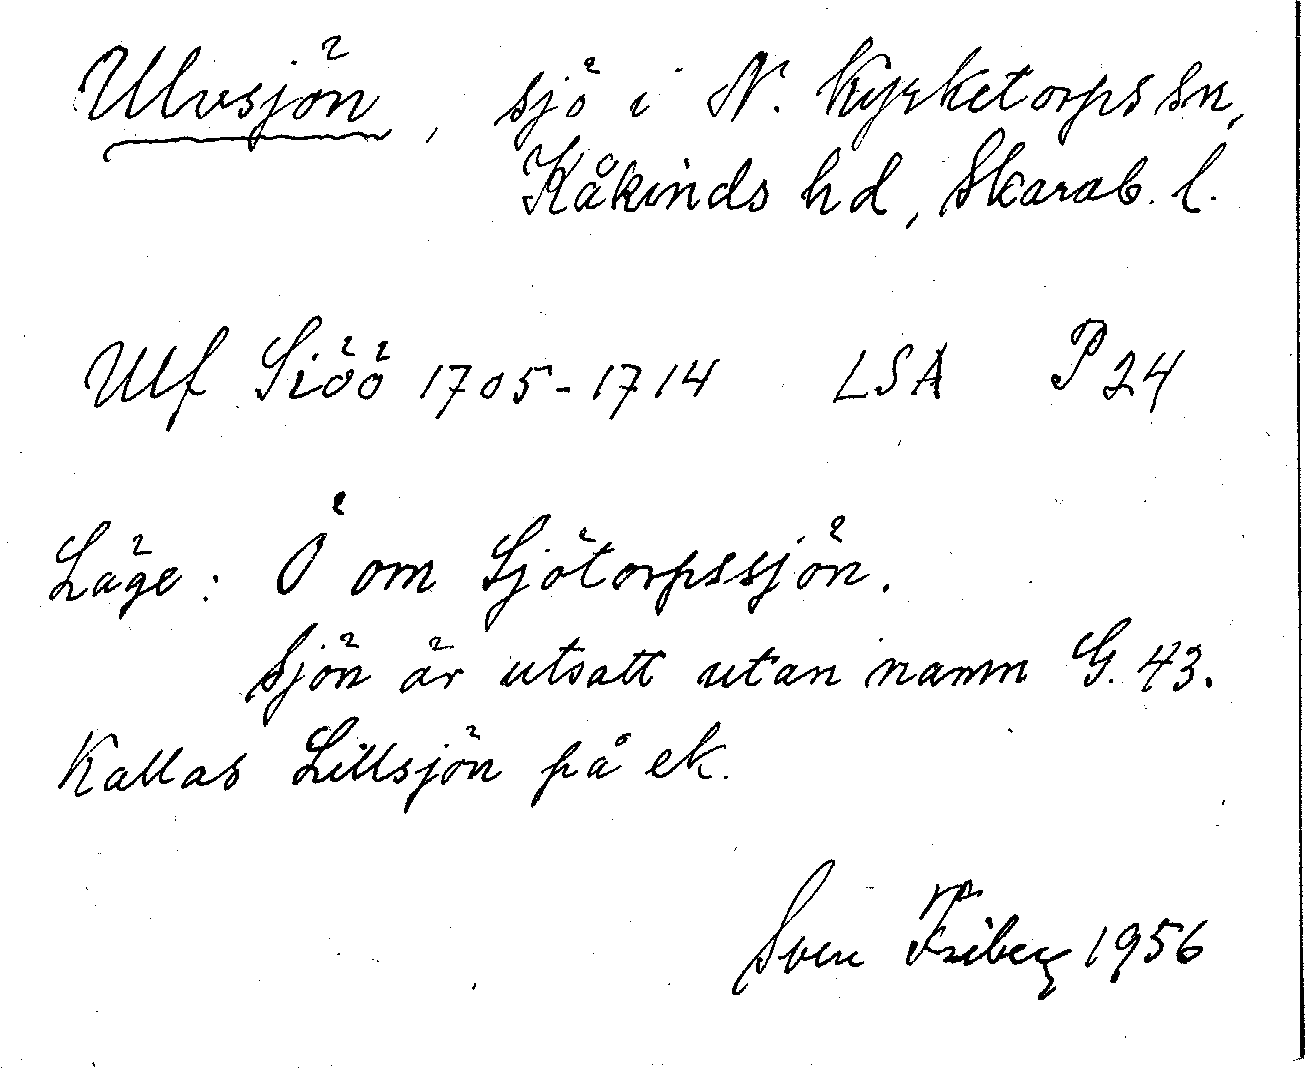 Ulvsjön, sjö i N. Kyrketorps sn,
Kåkinds hd, Skarab. l.
Ulf Siöö 1705-1714 LSA P24
Läge: Ö om Sjötorpssjön.
Sjön är utsatt utan namn G. 43.
Kallas Lillsjön på ek.
Sven Friberg 1956